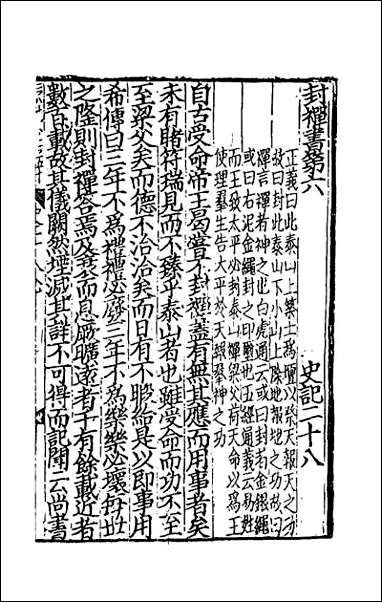 封禪書第六 史記二十八
正義曰此泰山上築土爲壇以祭天報天之功
故曰封此泰山下小山上除地報地之功故曰
禪言禪者神之也白虎通云或曰封者金銀繩
或曰石泥金繩封之印璽也五經通義云易姓
而王致太平必封泰山禪梁父荷天命以爲王
使理羣生告太平於天報羣神之功
自古受命帝王曷嘗不封禪蓋有無其應而用事者矣
未有睹符瑞見而不臻乎泰山者也雖受命而功不至
至梁父矣而德不洽洽矣而日有不暇給是以即事用
希傳曰三年不爲禮禮必廢三年不爲樂樂必壞每世
之隆則封禪荅焉及衰而息厥曠遠者千有餘載近者
數百載故其儀闕然堙滅其詳不可得而記聞云尚書